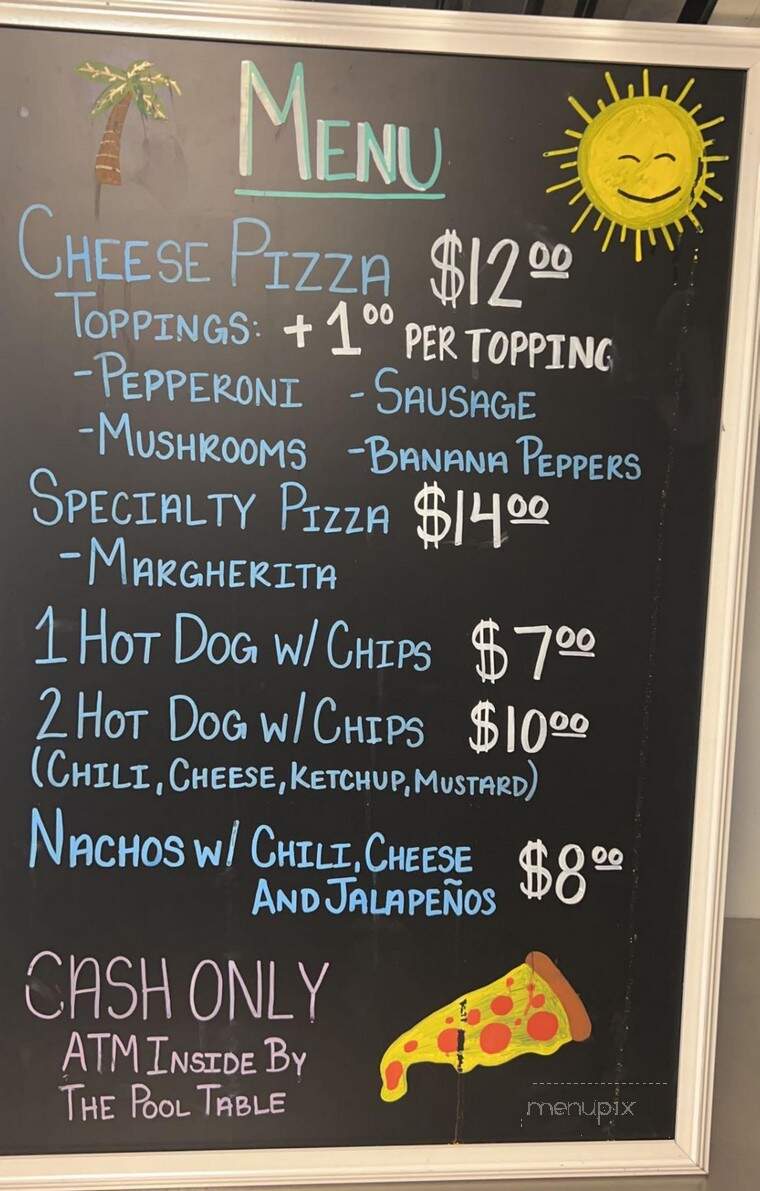 MENU
CHEESE PIZZA $12.00
TOPPINGS: +1.00 PER TOPPING
-PEPPERONI -SAUSAGE
-MUSHROOMS -BANANA PEPPERS
SPECIALTY PIZZA $14.00
-MARGHERITA
1 HOT DOG W/ CHIPS $7.00
2 HOT DOG W/ CHIPS $10.00
(CHILI, CHEESE, KETCHUP, MUSTARD)
NACHOS W/ CHILI, CHEESE $8.00
AND JALAPEÑOS
CASH ONLY
ATM INSIDE BY
THE POOL TABLE
menupix